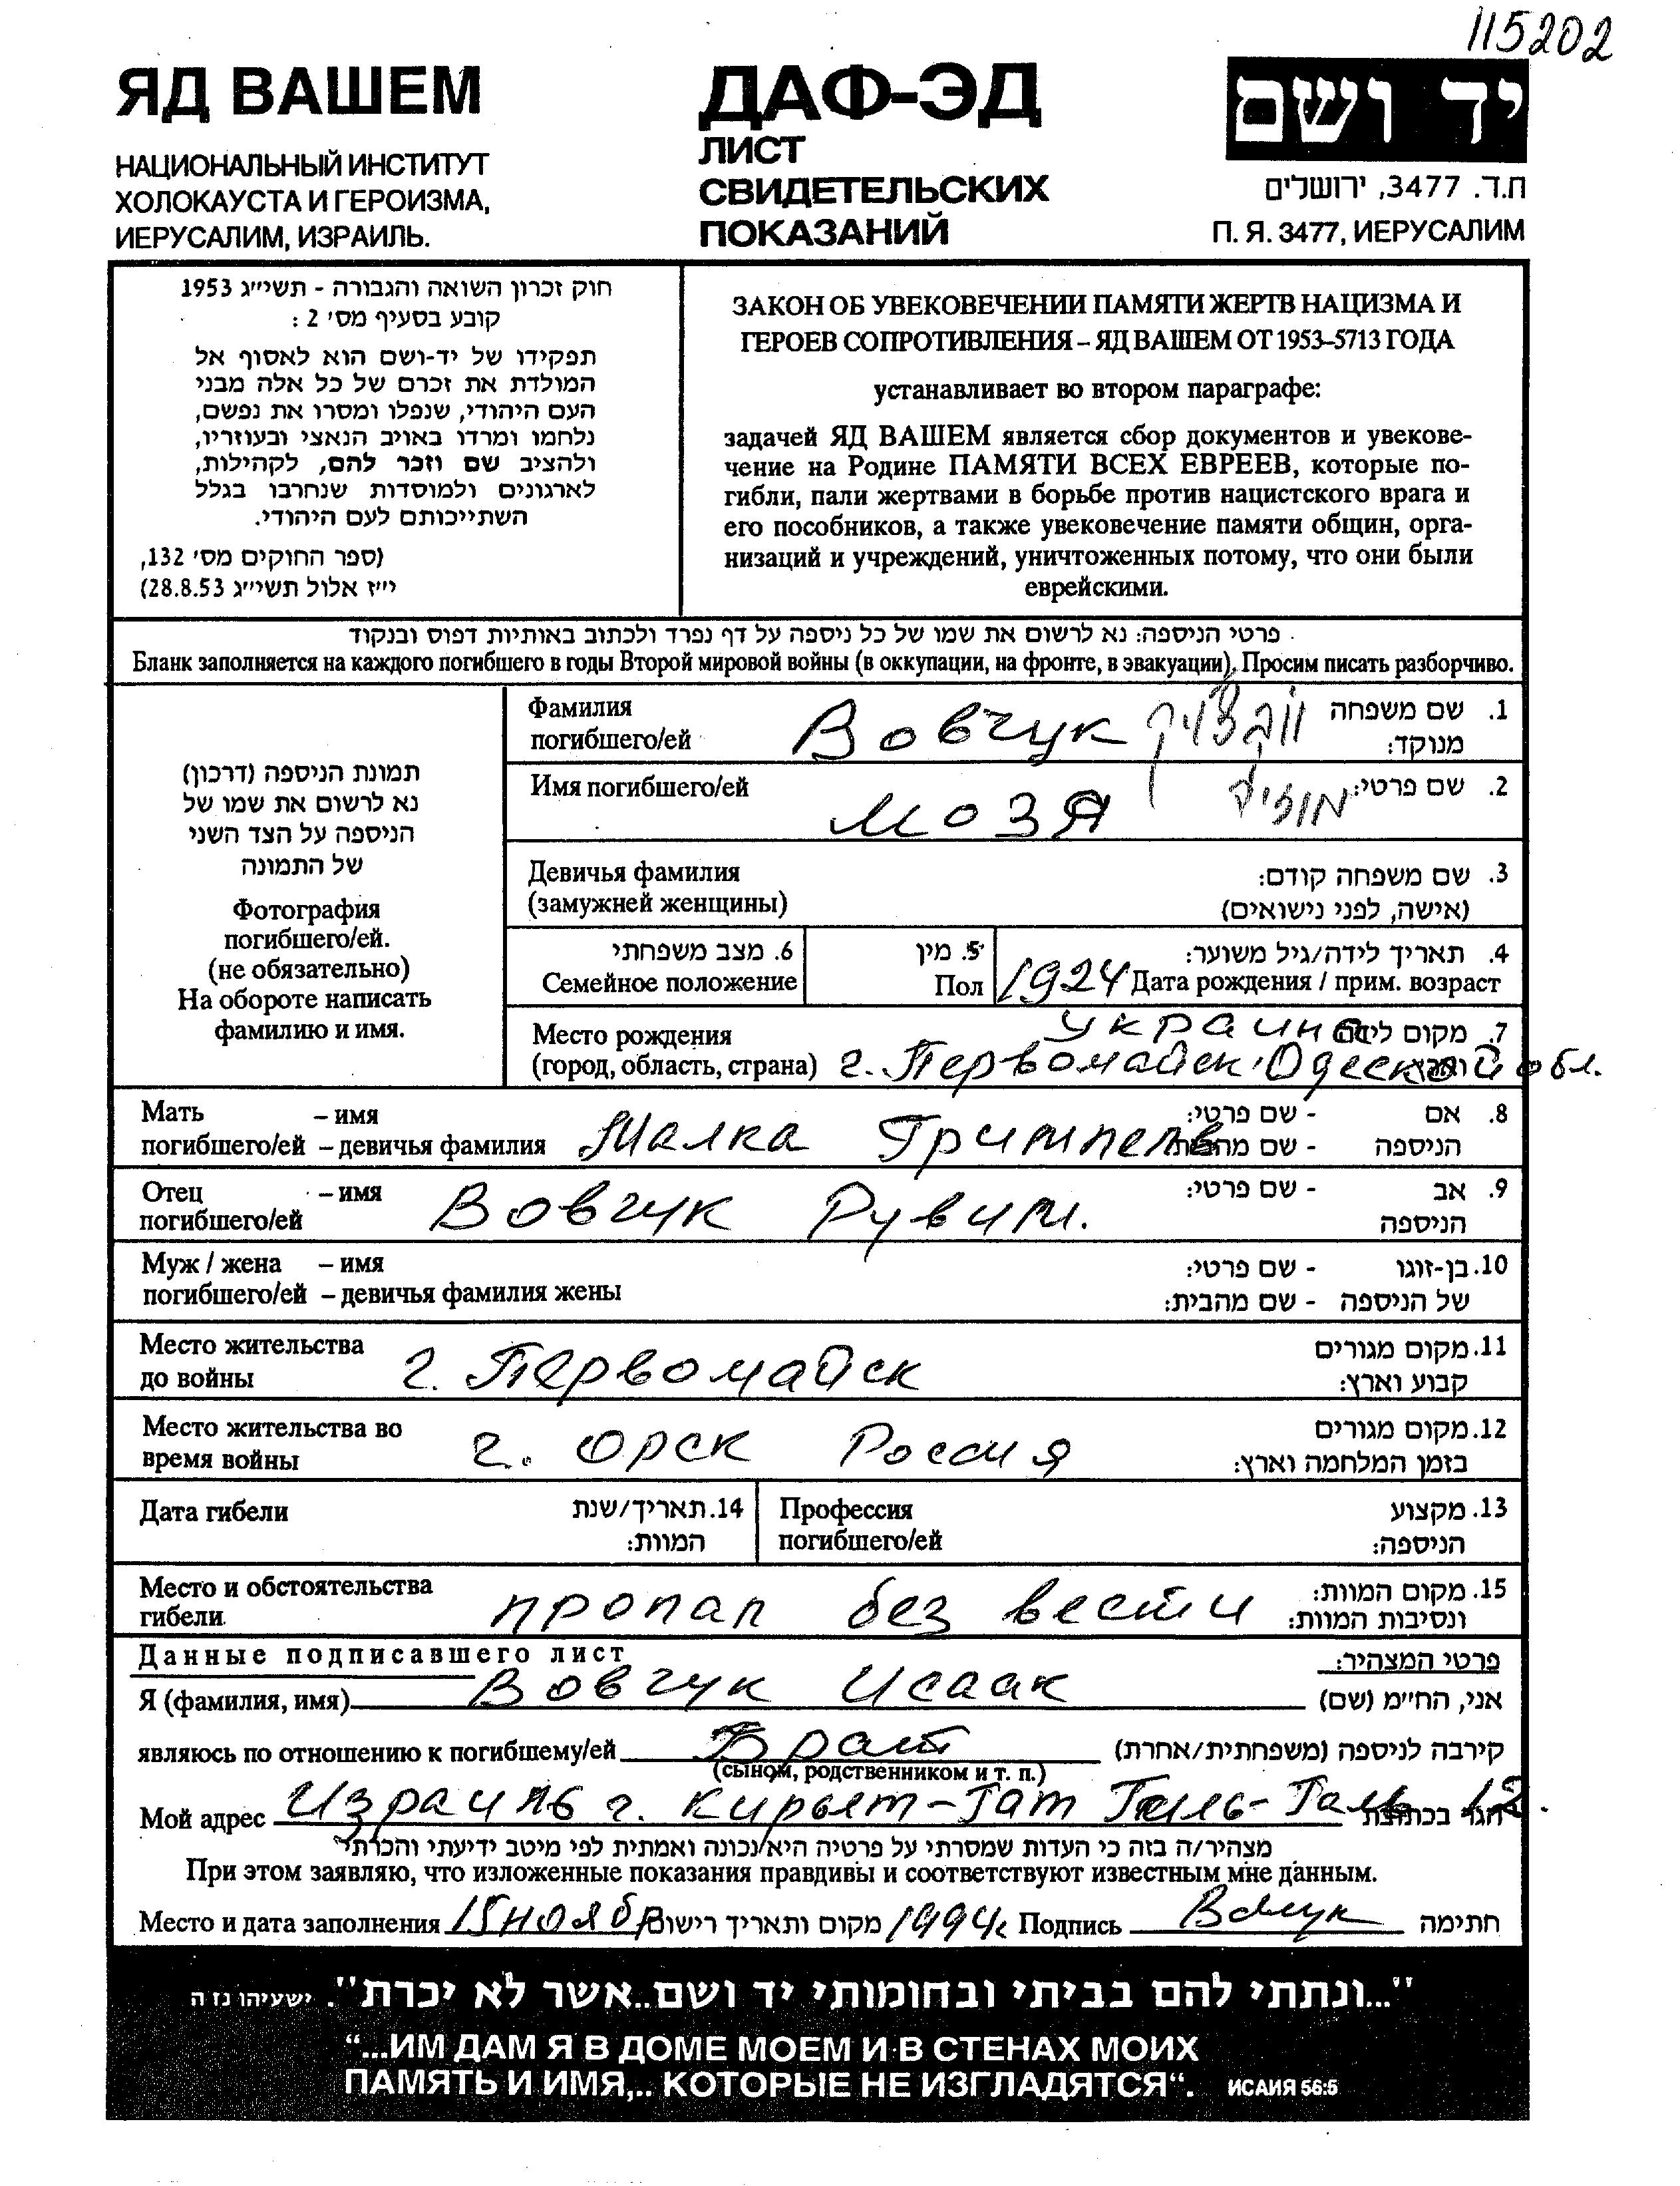 115202
ЯД ВАШЕМ
НАЦИОНАЛЬНЫЙ ИНСТИТУТ
ХОЛОКАУСТА И ГЕРОИЗМА,
ИЕРУСАЛИМ, ИЗРАИЛЬ.
ДАФ-ЭД
ЛИСТ
СВИДЕТЕЛЬСКИХ
ПОКАЗАНИЙ
יד ושם
ת.ד. 3477, ירושלים
П. Я. 3477, ИЕРУСАЛИМ
חוק זכרון השואה והגבורה - תשי״ג 1953
קובע בסעיף מס׳ 2 :
תפקידו של יד-ושם הוא לאסוף אל
המולדת את זכרם של כל אלה מבני
העם היהודי, שנפלו ומסרו את נפשם,
נלחמו ומרדו באויב הנאצי ובעוזריו,
ולהציב שם וזכר להם, לקהילות,
לארגונים ולמוסדות שנחרבו בגלל
השתייכותם לעם היהודי.
(ספר החוקים מס׳ 132,
י״ז אלול תשי״ג 28.8.53)
ЗАКОН ОБ УВЕКОВЕЧЕНИИ ПАМЯТИ ЖЕРТВ НАЦИЗМА И
ГЕРОЕВ СОПРОТИВЛЕНИЯ – ЯД ВАШЕМ ОТ 1953–5713 ГОДА
устанавливает во втором параграфе:
задачей ЯД ВАШЕМ является сбор документов и увекове-
чение на Родине ПАМЯТИ ВСЕХ ЕВРЕЕВ, которые по-
гибли, пали жертвами в борьбе против нацистского врага и
его пособников, а также увековечение памяти общин, орга-
низаций и учреждений, уничтоженных потому, что они были
еврейскими.
פרטי הניספה: נא לרשום את שמו של כל ניספה על דף נפרד ולכתוב באותיות דפוס ובנקוד
Бланк заполняется на каждого погибшего в годы Второй мировой войны (в оккупации, на фронте, в эвакуации). Просим писать разборчиво.
תמונת הניספה (דרכון)
נא לרשום את שמו של
הניספה על הצד השני
של התמונה
Фотография
погибшего/ей.
(не обязательно)
На обороте написать
фамилию и имя.
Фамилия
погибшего/ей Вовчук
1. שם משפחה
מנוקד:
Имя погибшего/ей Мозя
2. שם פרטי:
Девичья фамилия
(замужней женщины)
3. שם משפחה קודם:
(אישה, לפני נישואים)
6. מצב משפחתי
Семейное положение
5. מין
Пол
4. תאריך לידה/גיל משוער:
1924 Дата рождения / прим. возраст
Место рождения Украина 7. מקום
(город, область, страна) г. Первомайск Одесской обл.
Мать – имя
погибшего/ей – девичья фамилия Малка Гримпель
8. אם - שם פרטי:
הניספה - שם
Отец – имя
погибшего/ей Вовчук Рувим.
9. אב - שם פרטי:
הניספה
Муж / жена – имя
погибшего/ей – девичья фамилия жены
10. בן-זוגו - שם פרטי:
של הניספה - שם מהבית:
Место жительства
до войны г. Первомайск
11. מקום מגורים
קבוע וארץ:
Место жительства во
время войны г. Орск Россия
12. מקום מגורים
בזמן המלחמה וארץ:
Дата гибели
14. תאריך/שנת
המוות:
Профессия
погибшего/ей
13. מקצוע
הניספה:
Место и обстоятельства
гибели пропал без вести
15. מקום המוות:
ונסיבות המוות:
Данные подписавшего лист
פרטי המצהיר:
Я (фамилия, имя) Вовчук Исаак אני, הח״מ (שם)
являюсь по отношению к погибшему/ей Брат קירבה לניספה (משפחתית/אחרת)
(сыном, родственником и т. п.)
Мой адрес Израиль г. Кирьят-Гат Галь-Галь 12.
מצהיר/ה בזה כי העדות שמסרתי על פרטיה היא נכונה ואמתית לפי מיטב ידיעתי והכרתי
При этом заявляю, что изложенные показания правдивы и соответствуют известным мне данным.
Место и дата заполнения 15 ноябр מקום ותאריך רישום 1994г Подпись Вовчук חתימה
"...ונתתי להם בביתי ובחומותי יד ושם..אשר לא יכרת". ישעיהו נז ה
“...ИМ ДАМ Я В ДОМЕ МОЕМ И В СТЕНАХ МОИХ
ПАМЯТЬ И ИМЯ,.. КОТОРЫЕ НЕ ИЗГЛАДЯТСЯ“. ИСАИЯ 56:5